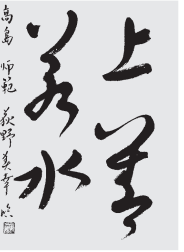 上善
若水
高島 師範 荻野美幸 臨